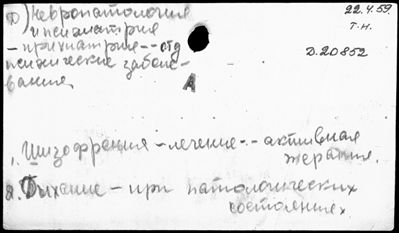 Ф) Невропатология
и психиатрия
22.4.59.
Т.Н.
- психиатрия - - отд
D.20852
психические заболе-
вания
A
1. Шизофрения - лечение - - активная
терапия.
2. Дыхание - при патологических
состояниях